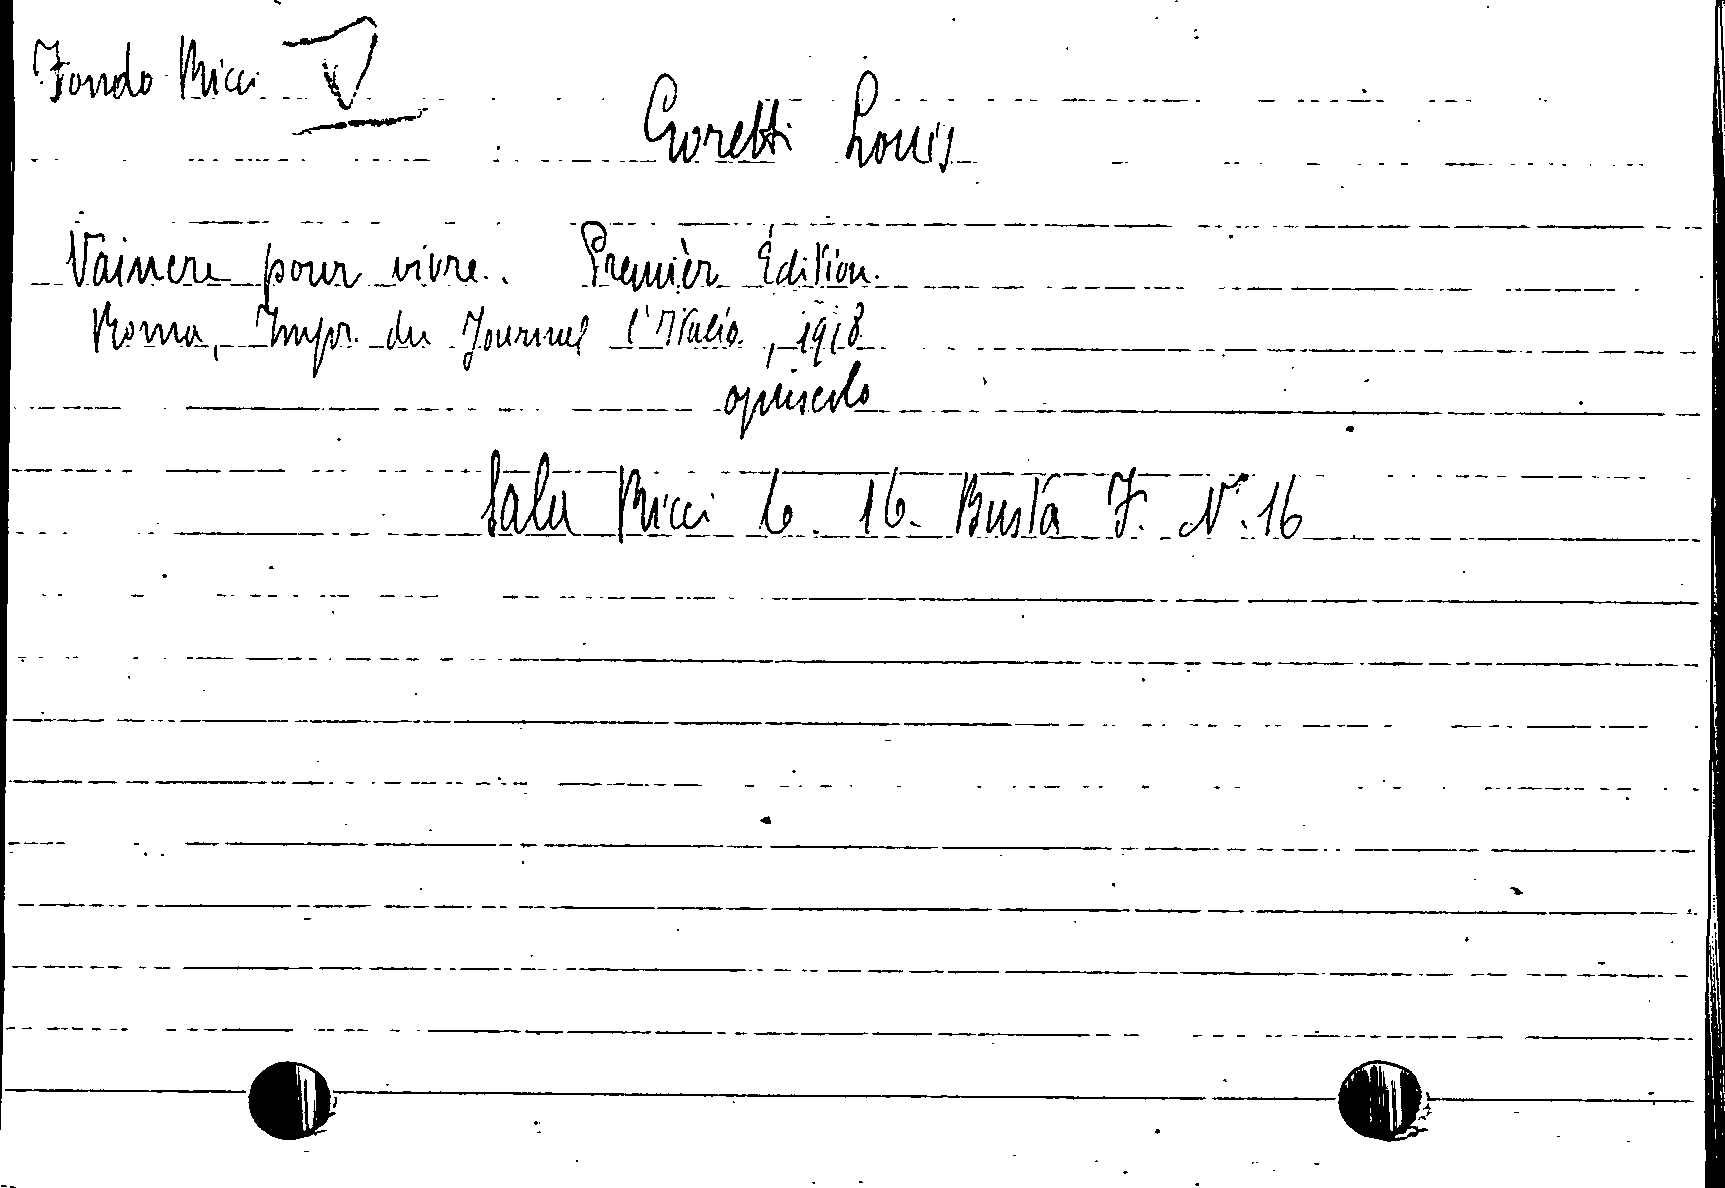 Fondo Ricci V
Goretti Louis
Vaincre pour vivre. Premièr Édition.
Roma, Impr. du Journal l'Italia, 1918
opuscolo
Sala Ricci 6. 16. Busta F. N. 16